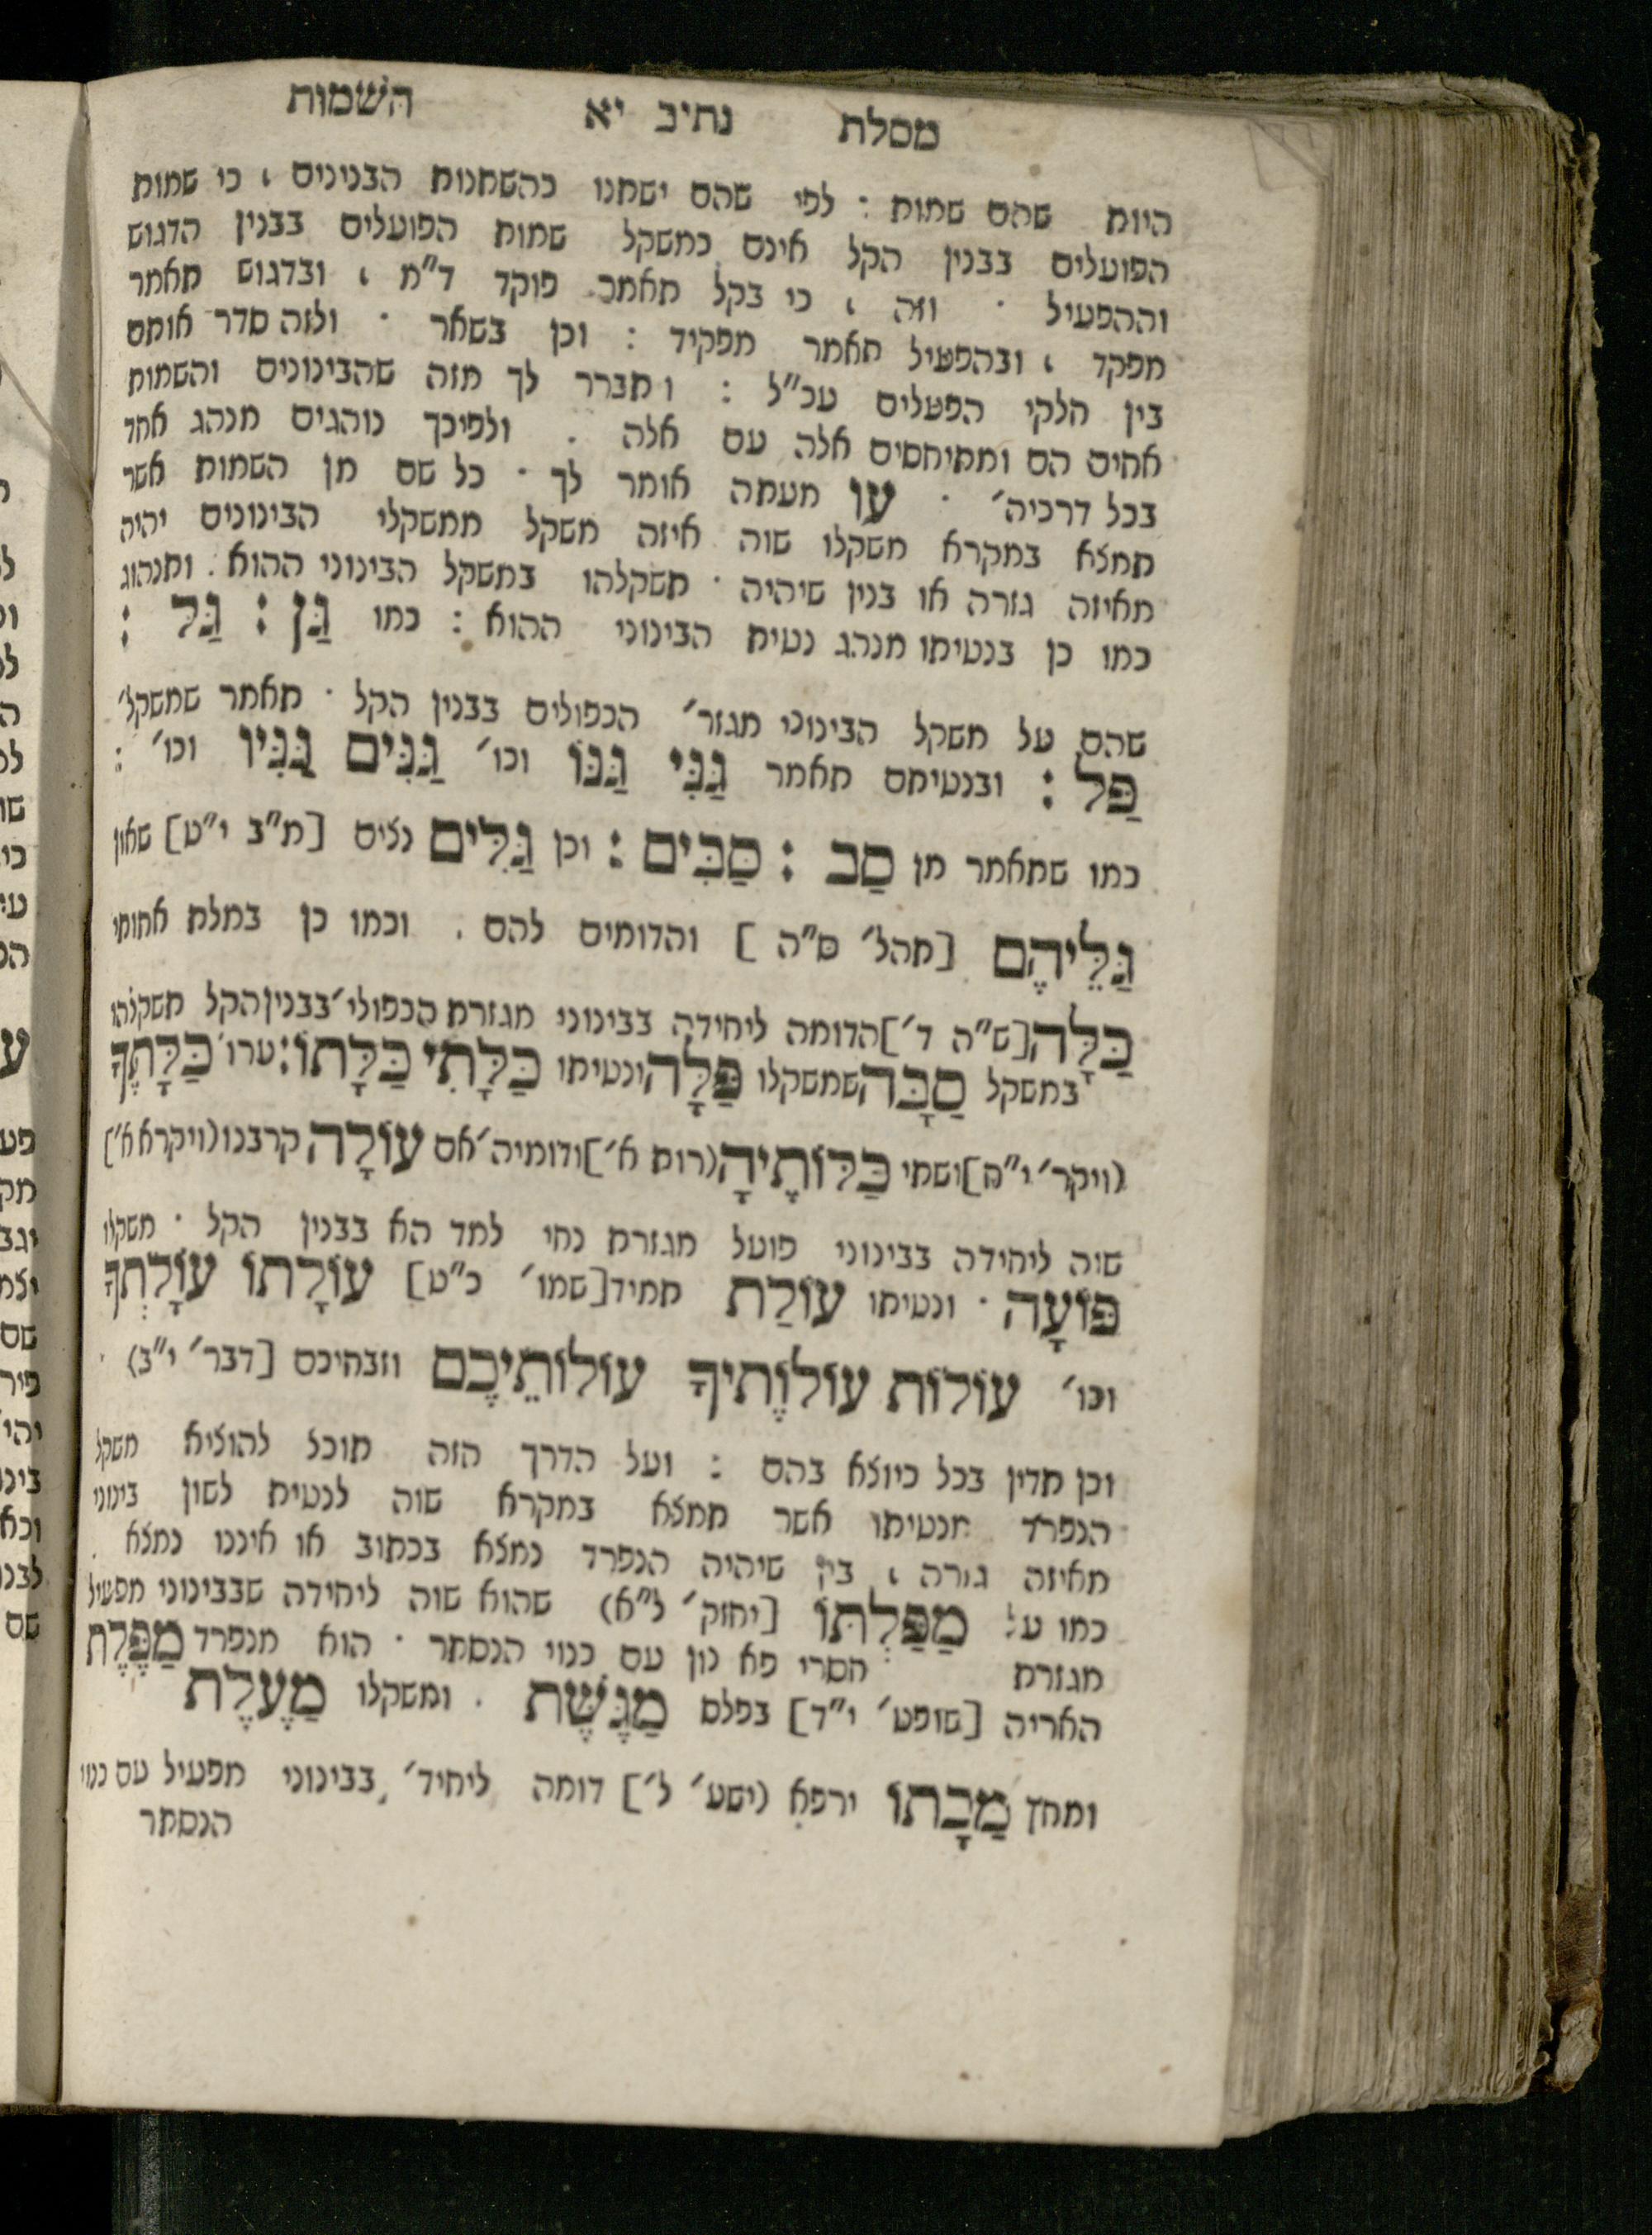 מסלת נתיב יא השמות
היות שהם שמות : לפי שהם ישתנו כהשתנות הבנינים , כי שמות
הפועלים בבנין הקל אינם כמשקל שמות הפועלים בבנין הדגוש
וההפעיל · וזה , כי בקל תאמר פוקד ד"מ , ובדגוש תאמר
מפקד , ובהפעיל תאמר מפקיד : וכן בשאר · ולזה סדר אותם
בין חלקי הפעלים עכ"ל : ותברר לך מזה שהבינונים והשמות
אחים הם ומתיחסים אלה עם אלה . ולפיכך נוהגים מנהג אחד
בכל דרכיה' · עו מעתה אומר לך · כל שם מן השמות אשר
תמצא במקרא משקלו שוה איזה משקל ממשקלי הבינונים יהיה
מאיזה גזרה או בנין שיהיה · תשקלהו במשקל הבינוני ההוא . ותנהוג
כמו כן בנטיתו מנהג נטית הבינוני ההוא : כמו גַּן : גַּל :
שהם על משקל הבינוני מגזר' הכפולים בבנין הקל · תאמר שמשקל'
פַּל : ובנטיתם תאמר גַּנִּי גַּנּוֹ וכו' גַּנִּים גַּנִּין וכו' :
כמו שתאמר מן סַב : סַבִּים : וכן גַּלִּים נצים [מ"ב י"ט] שאון
גַּלֵּיהֶם [תהל' ס"ה ] והדומים להם . וכמו כן במלת אחותי
כַּלָּה[ש"ה ד']הדומה ליחידה בבינוני מגזרת הכפולי'בבנין הקל תשקלהו
במשקל סַבָּה שמשקלו פַּלָּה ונטיתו כַּלָּתִי כַּלָּתוֹ: ערו' כַּלָּתְךָ
(ויקר' י"ח]ושתי כַּלּוֹתֶיהָ(רות א']ודומיה'אם עוֹלָה קרבנו(ויקרא א']
שוה ליחידה בבינוני פועל מגזרת נחי למד הא בבנין הקל · משקלו
פּוֹעָה · ונטיתו עוֹלַת תמיד[שמו' כ"ט] עוֹלָתוֹ עוֹלָתְךָ
וכו' עוֹלוֹת עוֹלוֹתֶיךָ עוֹלוֹתֵיכֶם וזבחיכם [דבר' י"ב) ·
וכן תדין בכל כיוצא בהם : ועל הדרך הזה תוכל להוציא משקל
הנפרד מנטיתו אשר תמצא במקרא שוה לנטית לשון בינוני
מאיזה גזרה , בין שיהיה הנפרד נמצא בכתוב או איננו נמצא .
כמו על מַפַּלְתּוֹ [יחזק' ל"א) שהוא שוה ליחידה שבבינוני מפעיל
מגזרת חסרי פא נון עם כנוי הנסתר · הוא מנפרד מַפֶּלֶת
האריה [שופט' י"ד] בפלס מַגֶּשֶׁת . ומשקלו מַעֶלֶת
ומחץ מַכָּתוֹ ירפא (ישע' ל'] דומה ליחיד' בבינוני מפעיל עם כנוי
הנסתר